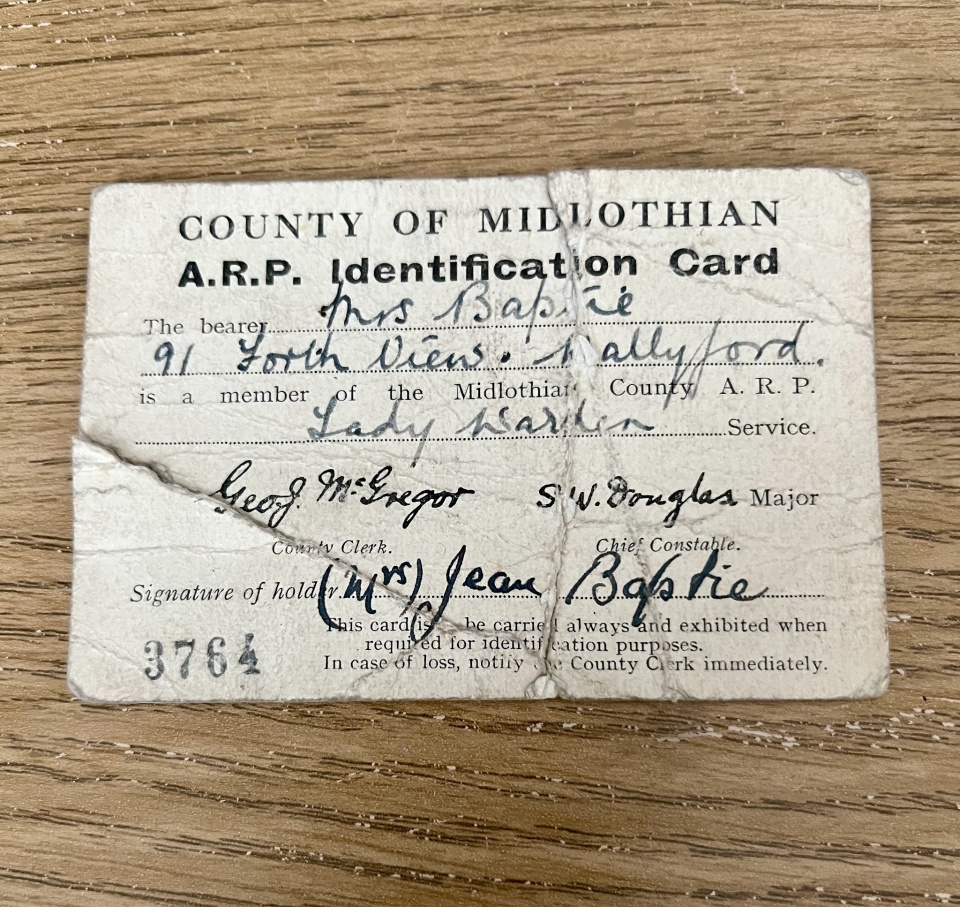 COUNTY OF MIDLOTHIAN
A.R.P. Identification Card
The bearer Mrs Baptie
91 Forth View. Wallyford.
is a member of the Midlothian County A. R. P.
Lady Warden Service.
Geo J. McGregor S W. Douglas Major
County Clerk. Chief Constable.
Signature of holder (Mrs) Jean Baptie
This card is be carried always and exhibited when
required for identification purposes.
3764 In case of loss, notify County Clerk immediately.